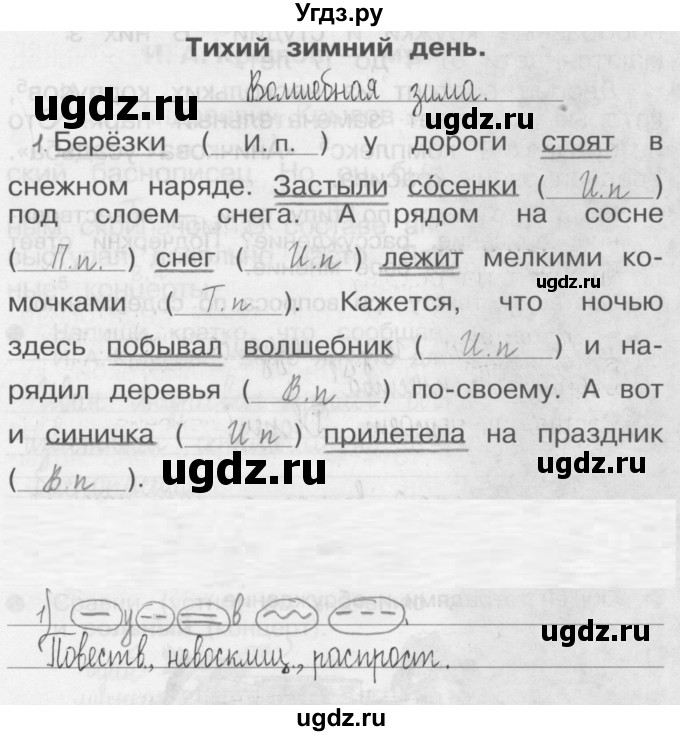 Угдз.ру
Тихий зимний день.
Волшебная зима.
ugdz.ru
ugdz.ru
1. Берёзки ( И.п. ) у дороги стоят в
снежном наряде. Застыли со́сенки ( И.п )
под слоем снега. А рядом на сосне
( П.п. ) снег ( И.п ) лежит мелкими ко-
мочками ( Т.п ). Кажется, что ночью
здесь побывал волшебник ( И.п ) и на-
рядил деревья ( В.п ) по-своему. А вот
и синичка ( И.п ) прилетела на праздник
( В.п ).
ugdz.ru
ugdz.ru
ugdz.ru
1) у в .
Повеств., невосклиц., распрост.
ugdz.ru
ugdz.ru